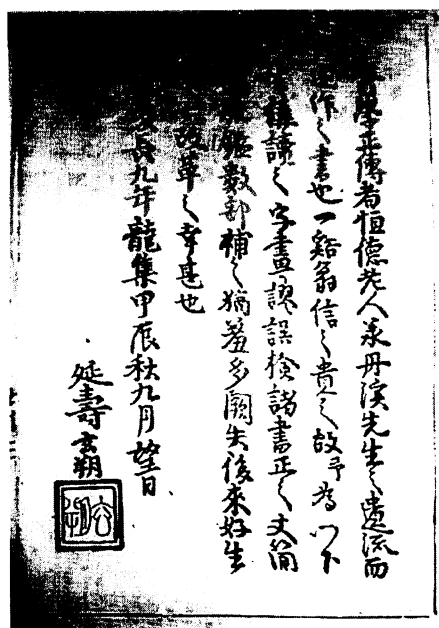 學正傳者恒德老人承丹溪先生之遺流而
作之書也一谿翁信之貴之故予為以下
讀之字畫謬誤撿諸書正之文簡
數部補之猶羞多闕失後來好生
改革之幸甚也
長九年龍集甲辰秋九月望日
延壽玄朔
玄朔